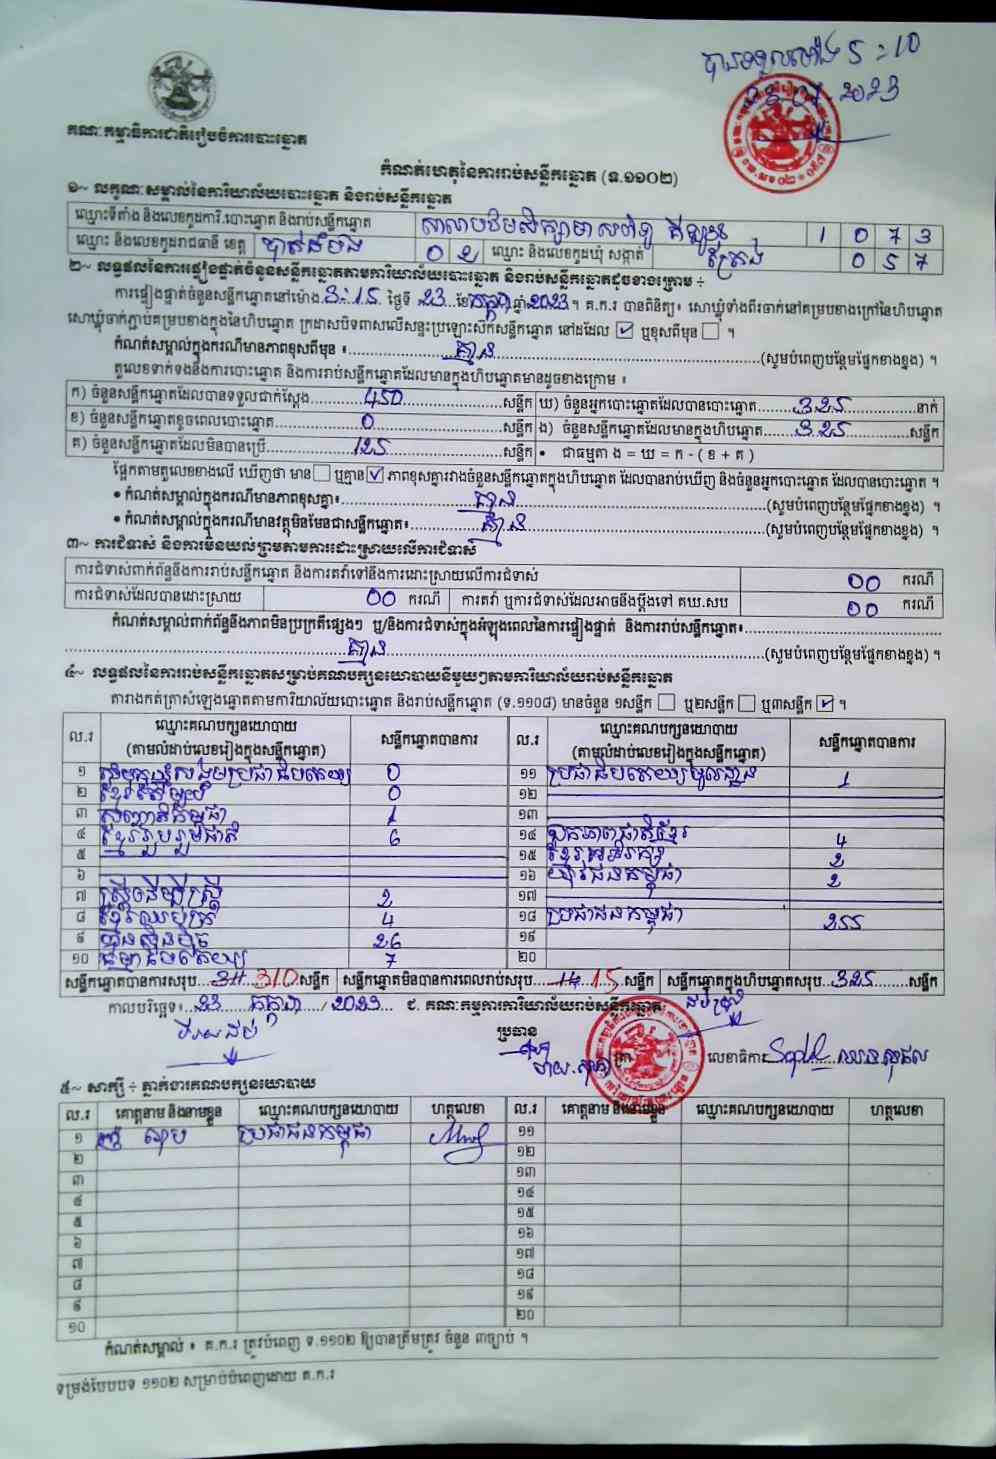 បានទទួលម៉ោង 5:10
23.07.2023
គណៈកម្មាធិការជាតិរៀបចំការបោះឆ្នោត
កំណត់ហេតុនៃការរាប់សន្លឹកឆ្នោត (ទ.១១០២)
១~ លក្ខណៈសម្គាល់នៃការិយាល័យបោះឆ្នោត និងរាប់សន្លឹកឆ្នោត
ឈ្មោះទីតាំង និងលេខកូដការិ.បោះឆ្នោត និងរាប់សន្លឹកឆ្នោត សាលាបឋមសិក្សា 1 0 7 3
ឈ្មោះ និងលេខកូដរាជធានី ខេត្ត បាត់ដំបង 0 2 ឈ្មោះ និងលេខកូដឃុំ សង្កាត់ 0 5 7
២~ លទ្ធផលនៃការផ្ទៀងផ្ទាត់ចំនួនសន្លឹកឆ្នោតតាមការិយាល័យបោះឆ្នោត និងរាប់សន្លឹកឆ្នោតដូចខាងក្រោម ÷
ការផ្ទៀងផ្ទាត់ចំនួនសន្លឹកឆ្នោតនៅម៉ោង 3:15 ថ្ងៃទី 23 ខែ កក្កដា ឆ្នាំ 2023 ។ គ.ក.រ បានពិនិត្យ៖ សោឃ្លុំទាំងពីរចាក់នៅគម្របខាងក្រៅនៃហិបឆ្នោត
សោឃ្លុំចាក់ភ្ជាប់គម្របខាងក្នុងនៃហិបឆ្នោត ក្រដាសបិទពាសលើសន្ទះប្រឡោះស៊កសន្លឹកឆ្នោត នៅដដែល ☑ ឬខុសពីមុន ☐ ។
កំណត់សម្គាល់ក្នុងករណីមានភាពខុសពីមុន ៖ គ្មាន (សូមបំពេញបន្ថែមផ្នែកខាងខ្នង) ។
តួលេខទាក់ទងនឹងការបោះឆ្នោត និងការរាប់សន្លឹកឆ្នោតដែលមានក្នុងហិបឆ្នោតមានដូចខាងក្រោម ៖
ក) ចំនួនសន្លឹកឆ្នោតដែលបានទទួលជាក់ស្តែង 450 សន្លឹក ឃ) ចំនួនអ្នកបោះឆ្នោតដែលបានបោះឆ្នោត 325 នាក់
ខ) ចំនួនសន្លឹកឆ្នោតខូចពេលបោះឆ្នោត 0 សន្លឹក ង) ចំនួនសន្លឹកឆ្នោតដែលមានក្នុងហិបឆ្នោត 325 សន្លឹក
គ) ចំនួនសន្លឹកឆ្នោតដែលមិនបានប្រើ 125 សន្លឹក • ជាធម្មតា ង = ឃ = ក - ( ខ + គ )
ផ្អែកតាមតួលេខខាងលើ ឃើញថា មាន ☐ ឬគ្មាន ☑ ភាពខុសគ្នារវាងចំនួនសន្លឹកឆ្នោតក្នុងហិបឆ្នោត ដែលបានរាប់ឃើញ និងចំនួនអ្នកបោះឆ្នោត ដែលបានបោះឆ្នោត ។
• កំណត់សម្គាល់ក្នុងករណីមានភាពខុសគ្នា៖ គ្មាន (សូមបំពេញបន្ថែមផ្នែកខាងខ្នង) ។
• កំណត់សម្គាល់ក្នុងករណីមានវត្ថុមិនមែនជាសន្លឹកឆ្នោត៖ គ្មាន (សូមបំពេញបន្ថែមផ្នែកខាងខ្នង) ។
៣~ ការជំទាស់ និងការមិនយល់ព្រមតាមការដោះស្រាយលើការជំទាស់
ការជំទាស់ពាក់ព័ន្ធនឹងការរាប់សន្លឹកឆ្នោត និងការតវ៉ាទៅនឹងការដោះស្រាយលើការជំទាស់ 00 ករណី
ការជំទាស់ដែលបានដោះស្រាយ 00 ករណី ការតវ៉ា ឬការជំទាស់ដែលអាចនឹងប្តឹងទៅ គឃ.សប 00 ករណី
កំណត់សម្គាល់ពាក់ព័ន្ធនឹងភាពមិនប្រក្រតីផ្សេងៗ ឬ/និងការជំទាស់ក្នុងអំឡុងពេលនៃការផ្ទៀងផ្ទាត់ និងការរាប់សន្លឹកឆ្នោត៖
គ្មាន (សូមបំពេញបន្ថែមផ្នែកខាងខ្នង) ។
៤~ លទ្ធផលនៃការរាប់សន្លឹកឆ្នោតសម្រាប់គណបក្សនយោបាយនីមួយៗតាមការិយាល័យរាប់សន្លឹកឆ្នោត
តារាងកត់ត្រាសំឡេងឆ្នោតតាមការិយាល័យបោះឆ្នោត និងរាប់សន្លឹកឆ្នោត (ទ.១១០៨) មានចំនួន ១សន្លឹក ☐ ឬ២សន្លឹក ☐ ឬ៣សន្លឹក ☑ ។
ល.រ ឈ្មោះគណបក្សនយោបាយ (តាមលំដាប់លេខរៀងក្នុងសន្លឹកឆ្នោត) សន្លឹកឆ្នោតបានការ ល.រ ឈ្មោះគណបក្សនយោបាយ (តាមលំដាប់លេខរៀងក្នុងសន្លឹកឆ្នោត) សន្លឹកឆ្នោតបានការ
១ សំបុកឃ្មុំសង្គមប្រជាធិបតេយ្យ 0 ១១ ប្រជាធិបតេយ្យមូលដ្ឋាន 1
២ ខ្មែរតែមួយ 0 ១២
៣ សញ្ជាតិកម្ពុជា 1 ១៣
៤ ខ្មែររួបរួមជាតិ 6 ១៤ ឯកភាពជាតិខ្មែរ 4
៥ ១៥ ខ្មែរអភិរក្ស 2
៦ ១៦ យុវជនកម្ពុជា 2
៧ ស្ត្រីដើម្បីស្ត្រី 2 ១៧
៨ ខ្មែរឈប់ក្រ 4 ១៨ ប្រជាជនកម្ពុជា 255
៩ ហ៊្វុនស៊ិនប៉ិច 26 ១៩
១០ ធម្មាធិបតេយ្យ 7 ២០
សន្លឹកឆ្នោតបានការសរុប 310 សន្លឹក សន្លឹកឆ្នោតមិនបានការពេលរាប់សរុប 15 សន្លឹក សន្លឹកឆ្នោតក្នុងហិបឆ្នោតសរុប 325 សន្លឹក
កាលបរិច្ឆេទ៖ 23 កក្កដា / 2023 ជ. គណៈកម្មការការិយាល័យរាប់សន្លឹកឆ្នោត
ប្រធាន
លេខាធិការ
៥~ សាក្សី ÷ ភ្នាក់ងារគណបក្សនយោបាយ
ល.រ គោត្តនាម និងនាមខ្លួន ឈ្មោះគណបក្សនយោបាយ ហត្ថលេខា ល.រ គោត្តនាម និងនាមខ្លួន ឈ្មោះគណបក្សនយោបាយ ហត្ថលេខា
១ ប្រជាជនកម្ពុជា ១១
២ ១២
៣ ១៣
៤ ១៤
៥ ១៥
៦ ១៦
៧ ១៧
៨ ១៨
៩ ១៩
១០ ២០
កំណត់សម្គាល់ ៖ គ.ក.រ ត្រូវបំពេញ ទ.១១០២ ឱ្យបានត្រឹមត្រូវ ចំនួន ៣ច្បាប់ ។
ទម្រង់បែបបទ ១១០២ សម្រាប់បំពេញដោយ គ.ក.រ